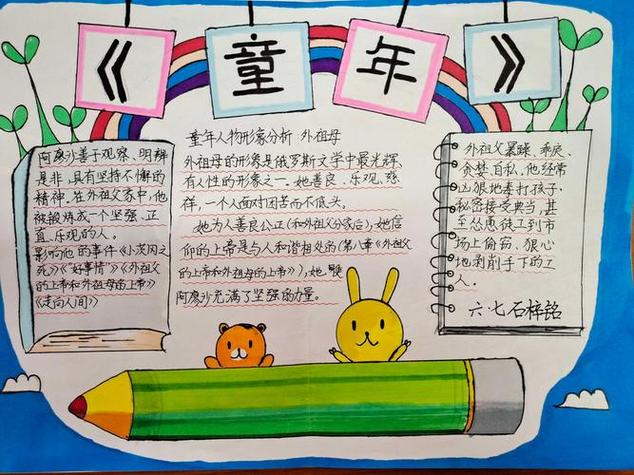 《童年》
阿廖沙善于观察、明辨
是非，具有坚持不懈的
精神。在外祖父家中，他
被锻炼成一个坚强、正
直、乐观的人。
影响他的事件《小茨冈之
死》《"好事情"》《外祖父
的上帝和外祖母的上帝》
《走向人间》
童年人物形象分析 外祖母
外祖母的形象是俄罗斯文学中最光辉、
有人性的形象之一。她善良、乐观、慈
祥，一个人面对困苦而不低头。
她为人善良公正(和外祖父分家后)，她信
仰的上帝是与人和谐相处的(第八章《外祖父
的上帝和外祖母的上帝》)，她
阿廖沙充满了坚强的力量。
外祖父暴躁、乖戾、
贪婪、自私，他经常
凶狠地毒打孩子，
秘密接受典当，甚
至怂恿徒工到市
场上偷窃、狠心
地剥削手下的工
人.
六·七石梓铭